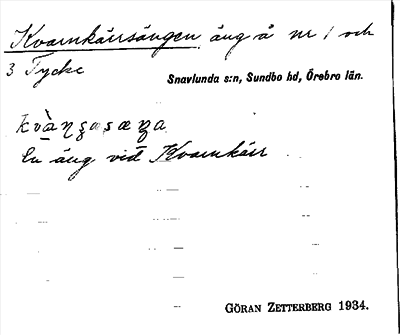 Kvarnkärrsängen äng å nr 1 och
3 Tycke
Snavlunda s:n, Sundbo hd, Örebro län.
En äng vid Kvarnkärr
GÖRAN ZETTERBERG 1934.